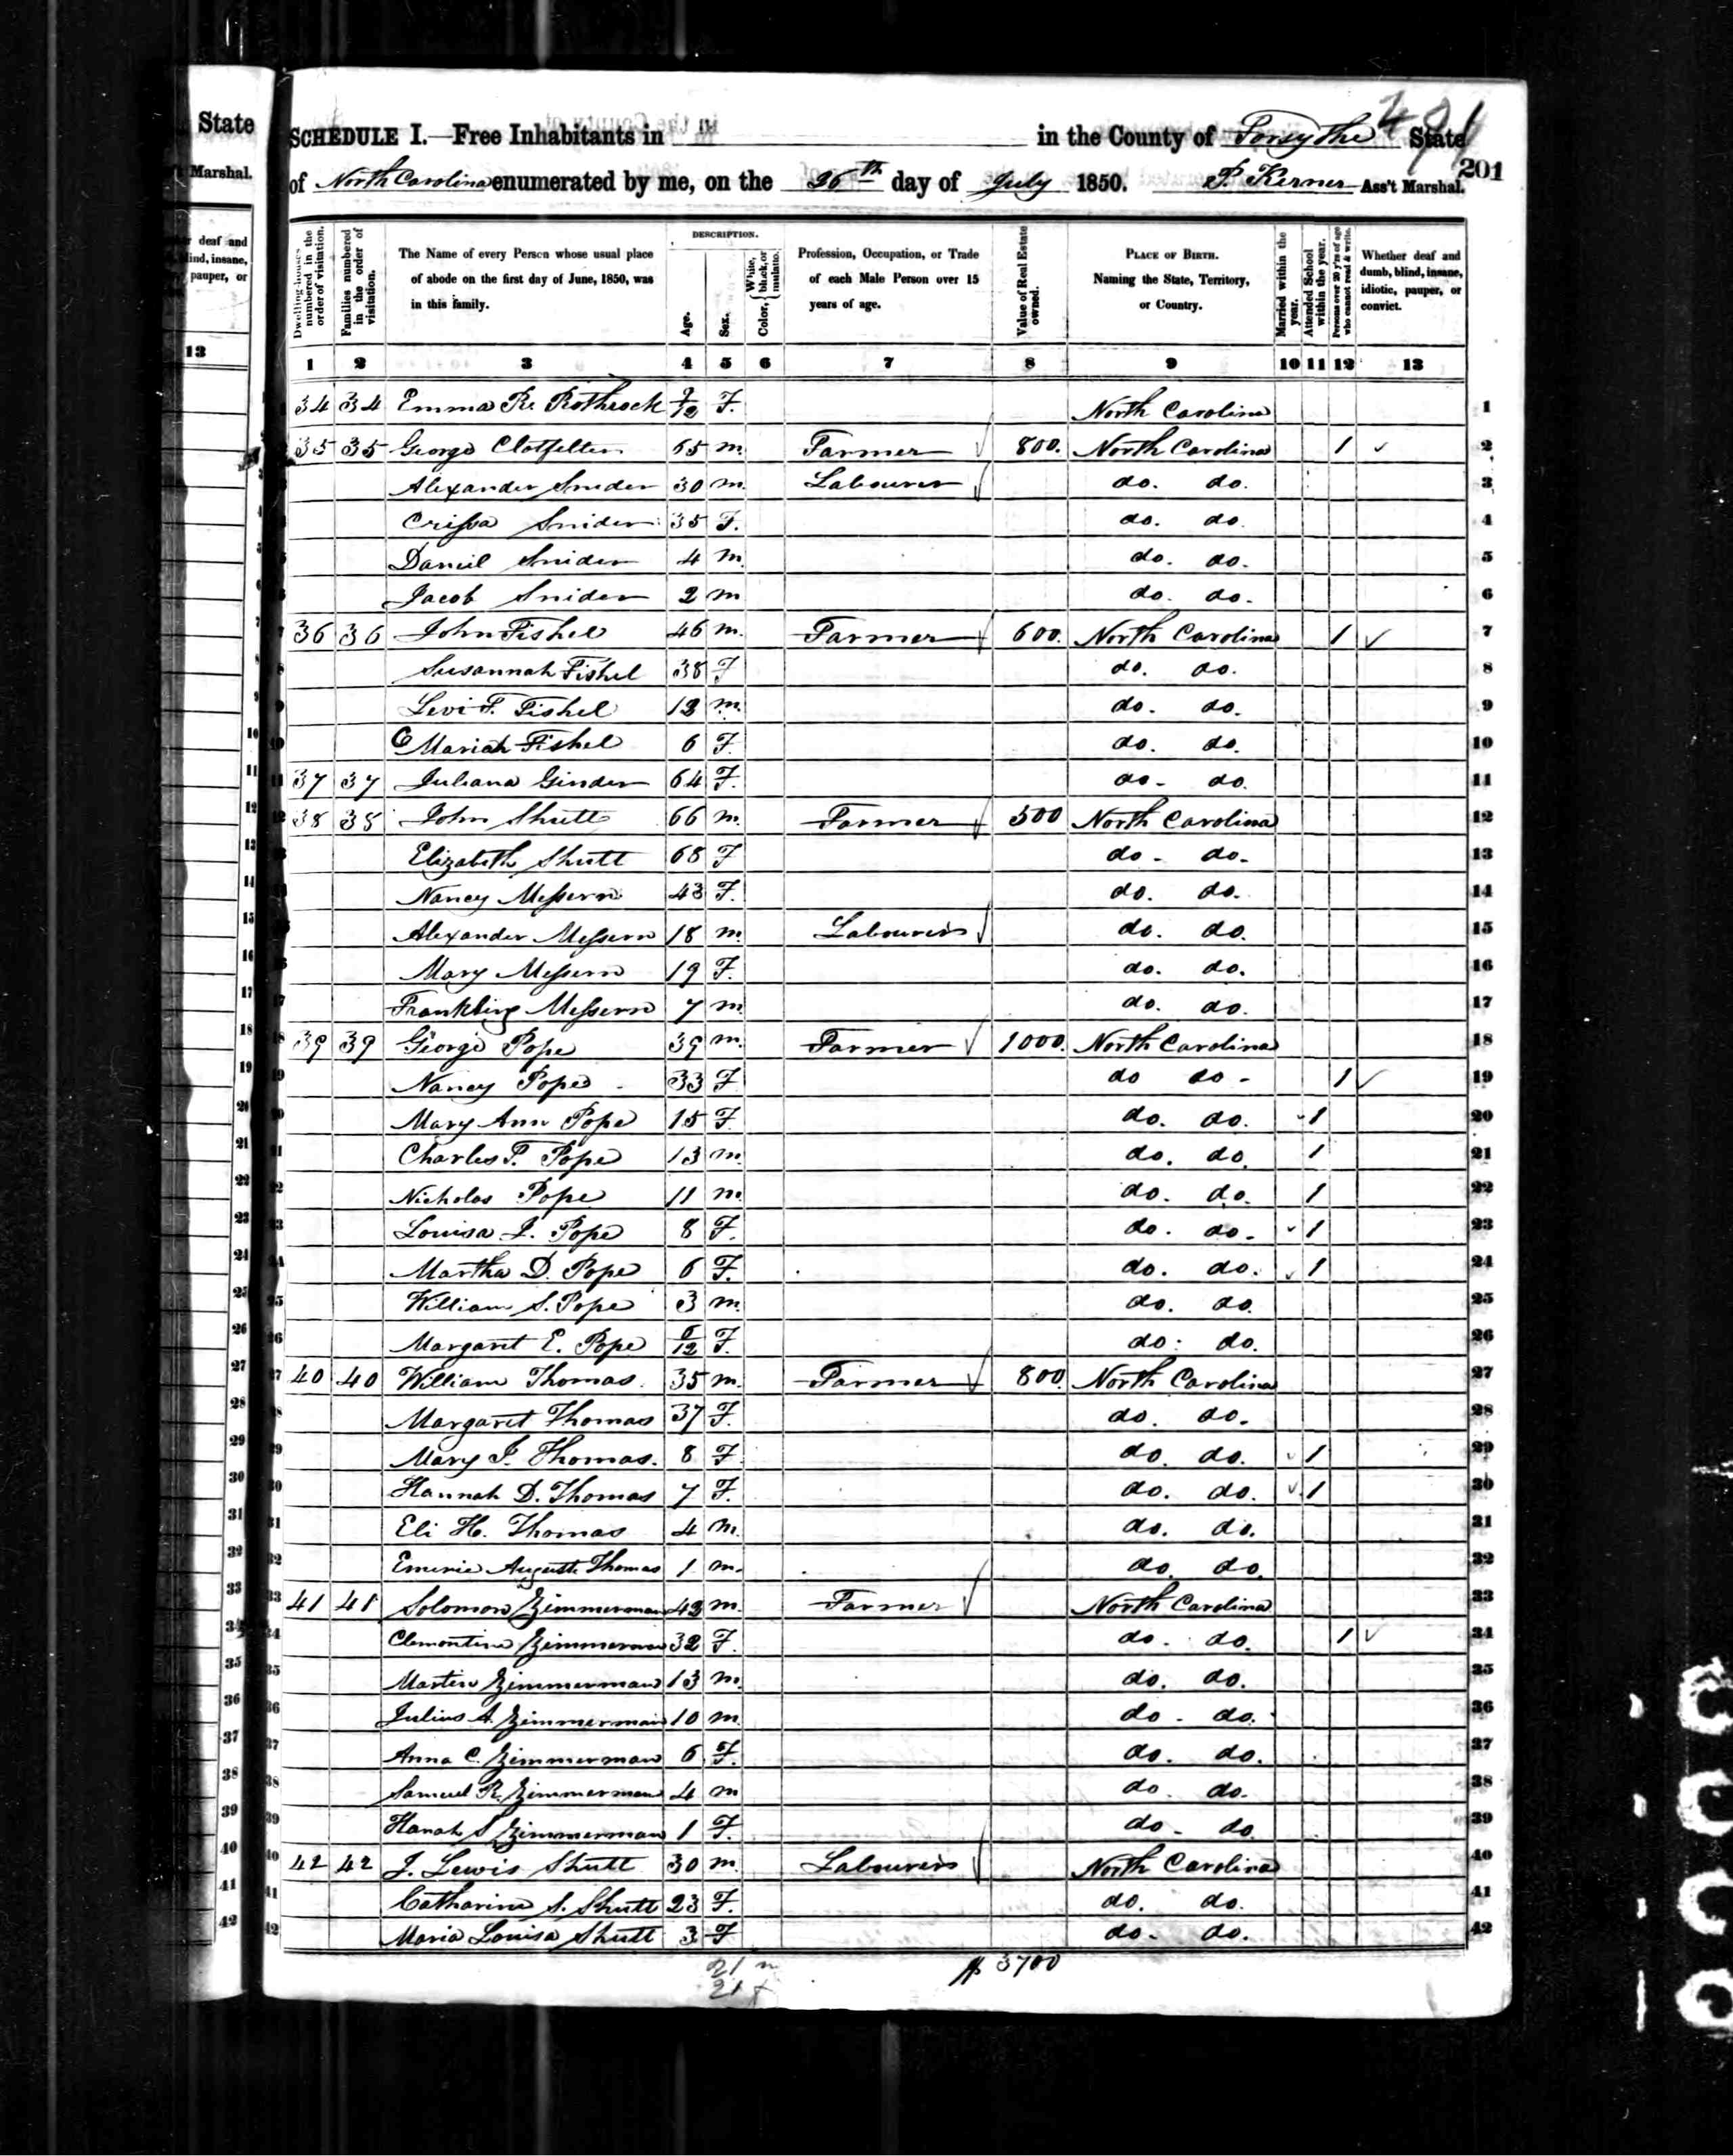 State
Marshal.
deaf and
ind, insane,
pauper, or
13
SCHEDULE I.—Free Inhabitants in in the County of Forsythe State
of North Carolina enumerated by me, on the 26th day of July 1850. P. Kerner Ass't Marshal.
201
Dwelling-houses numbered in the order of visitation.
Families numbered in the order of visitation.
The Name of every Person whose usual place of abode on the first day of June, 1850, was in this family.
DESCRIPTION.
Age.
Sex.
Color, White, black, or mulatto.
Profession, Occupation, or Trade of each Male Person over 15 years of age.
Value of Real Estate owned.
PLACE OF BIRTH. Naming the State, Territory, or Country.
Married within the year.
Attended School within the year.
Persons over 20 y'rs of age who cannot read & write.
Whether deaf and dumb, blind, insane, idiotic, pauper, or convict.
1 2 3 4 5 6 7 8 9 10 11 12 13
34 34 Emma R. Rothrock 7/12 F. North Carolina 1
35 35 George Clotfelter 65 m. Farmer 800. North Carolina 1 2
Alexander Snider 30 m. Labourer do. do. 3
Crissa Snider 35 F. do. do. 4
Daniel Snider 4 m. do. do. 5
Jacob Snider 2 m do. do. 6
36 36 John Fishel 46 m. Farmer 600. North Carolina 1 7
Susannah Fishel 38 F do. do. 8
Levi F. Fishel 12 m. do. do. 9
C Mariah Fishel 6 F. do. do. 10
37 37 Juliana Ginder 64 F. do. do. 11
38 38 John Shutt 66 m. Farmer 500 North Carolina 12
Elizabeth Shutt 68 F do. do. 13
Nancy Messern 43 F. do. do. 14
Alexander Messern 18 m. Labourer do. do. 15
Mary Messern 19 F. do. do. 16
Frankling Messern 7 m do. do. 17
39 39 George Pope 39 m. Farmer 1000. North Carolina 18
Nancy Pope 33 F do do 1 19
Mary Ann Pope 15 F. do. do. 1 20
Charles T. Pope 13 m. do. do. 1 21
Nicholas Pope 11 m. do. do. 1 22
Louisa J. Pope 8 F. do. do. 1 23
Martha D. Pope 6 F. do. do. 1 24
William S. Pope 3 m. do. do. 25
Margaret E. Pope 6/12 F. do. do. 26
40 40 William Thomas 35 m. Farmer 800. North Carolina 27
Margaret Thomas 37 F. do. do. 28
Mary J. Thomas. 8 F do. do. 1 29
Hannah D. Thomas 7 F. do. do. 1 30
Eli H. Thomas 4 m. do. do. 31
August Thomas 1 m. do. do. 32
41 41 Solomon Zimmerman 42 m. Farmer North Carolina 33
Clementine Zimmerman 32 F. do. do. 1 34
Martin Zimmerman 13 m. do. do. 35
Julius A. Zimmerman 10 m. do. do. 36
Anna C. Zimmerman 6 F. do. do. 37
Samuel R. Zimmerman 4 m do. do. 38
Hanah S Zimmerman 1 F. do. do. 39
42 42 J. Lewis Shutt 30 m. Labourer North Carolina 40
Catharine S. Shutt 23 F. do. do. 41
Maria Louisa Shutt 3 F do. do. 42
21 m $ 3700
21 f